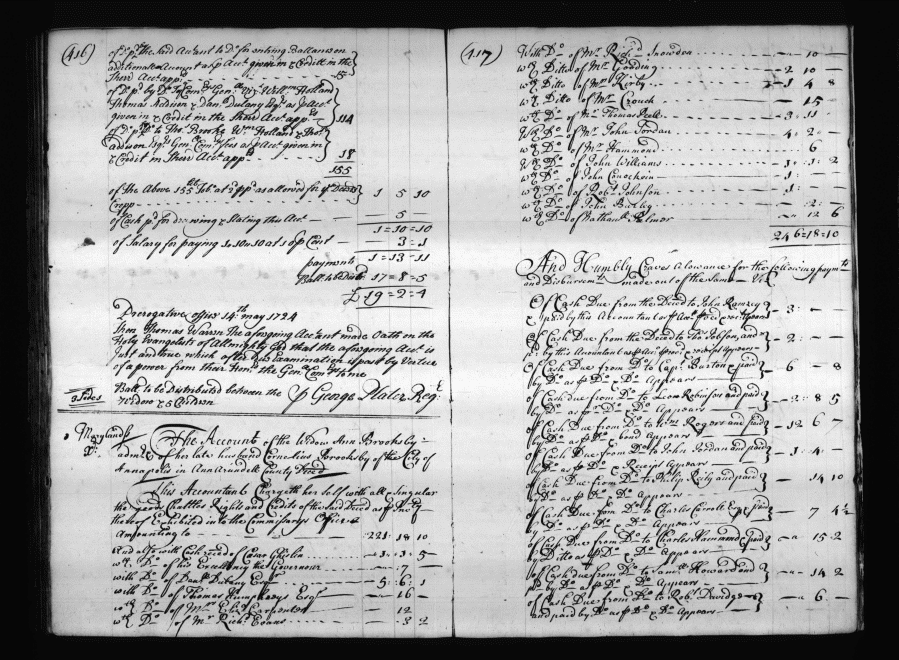 (416)
of Do pd the said Acctant to Do for writing Ballances on
additional Account as p Acct given in & Credit in the
Third Acct appd 15
of Do pd by Do to Comrs Genll Wm Holland
Thomas Addison & Danl Dulany Esqs as p Acct
given in & Credit in the third Acct appd 114
of Do pd Do to Tho Brooke Wm Holland & Tho
Addison Esqs Genll fees as p Acct given in
& Credit in Their Acct appd 18
155
of the Above 155 Tobo at 2d pp as allowed for ye Deced
Cropp 1 5 10
of Cash pd for drawing & Stating this Acct — 5 —
1 = 10 = 10
of Salary for paying at p Cent — 3 = 1
payments 1 = 13 - 11
Ball to be distd 17 = 8 = 5
£ 19 = 2 = 4
Prerogative office 14th may 1724
Then Thomas Warren the aforegoing Acctant made Oath on the
Holy Evangelists of Almighty God that the aforegoing Acct is
Just and true which after due Examination is past by Vertue
of a power from their Honrs the Genll Comrs to me
p George Plater Regr
3 Sides
Ball to be Distributed between the
Widow & 5 Children
Maryland ss
The Account of the Widow Ann Brooksby
admx of her late husband Cornelius Brooksby of the City of
Annapolis in Ann Arundell County Deced
This Accountant Chargeth her Self with all & Singular
the goods Chattles Rights and Credits of the said Deced as p Invty
thereof Exhibited into the Commissarys Office
Amounting to 221 18 10
And also with Cash reced of Cesar Ghiselin 1 = 1 = 5
wth Do of his Excellency the Governour — 7 —
with Do of Danll Dulany Esqr 5 = 6 = 1
with Do of Thomas Humphrys Esqr — 16 —
wth Do of Mrs Eliz Carpenter — 12
wth Do of Mr Richd Evans — 3 2
(417)
With Do of Mr Richd Snowden — 10 —
wth Ditto of Mr Godding 2 10 —
wth Ditto of Mr Kirby 1 4 8
wth Ditto of Mr Crouch — 15 —
wth Do of Mr Thomas Peele 3 = 11
Wth Do of Mr John Jordan 4 = 2 —
wth Do of Mr Hammond 6
Wth Do of John Williams 1 = 1 = 2
wth Do of John 1 =
wth Do of Robt Johnson 1 =
wth Do of John — 2 =
wth Do of Nathanll Palmer — 12 6
246 = 18 = 10
And Humbly Craves Allowance for the following paymts
and Disbursemts made out of the Same Vizt
Of Cash Due from the Deced to John Ramsey
& paid by this Accountant as p Acct pred & rect appears — 3 =
Of Cash Due from the Deced to Tho Jobson, and
pd by this Accountant as p Acct pred & receipt Appears — 2 =
Of Cash Due from Do to Capt Burton & paid
by Do as p Do & Do Appears — 6 — 8
Of Cash due from Do to Leon Robinson and paid
by Do as p Do & Do Appears — 2 = 8 5
Of Cash Due from Do to Wm Rogers and paid
by Do as p Do & bond Appears — 12 6 7
Of Cash Due from Do to John Jordan and paid
by Do as p Do & Receipt Appears — 1 = 4 —
Of Cash Due from Do to Philip and paid
by Do as p Do & Do Appears — 14 10
of Cash Due from Do to Charles Carroll Esqr & paid
by Do as p Do & Do Appears — 7 4½
of Cash Due from Do to Charles Hammond & paid
by Ditto as p Do & Do Appears — 15 2
Of Cash due from Do to Samll Howard and
pd by Do as p Do & Do Appears — 14 2
of Cash Due from Do to Robt Davidge
and paid by Do as p Do & Do Appears — 6 —